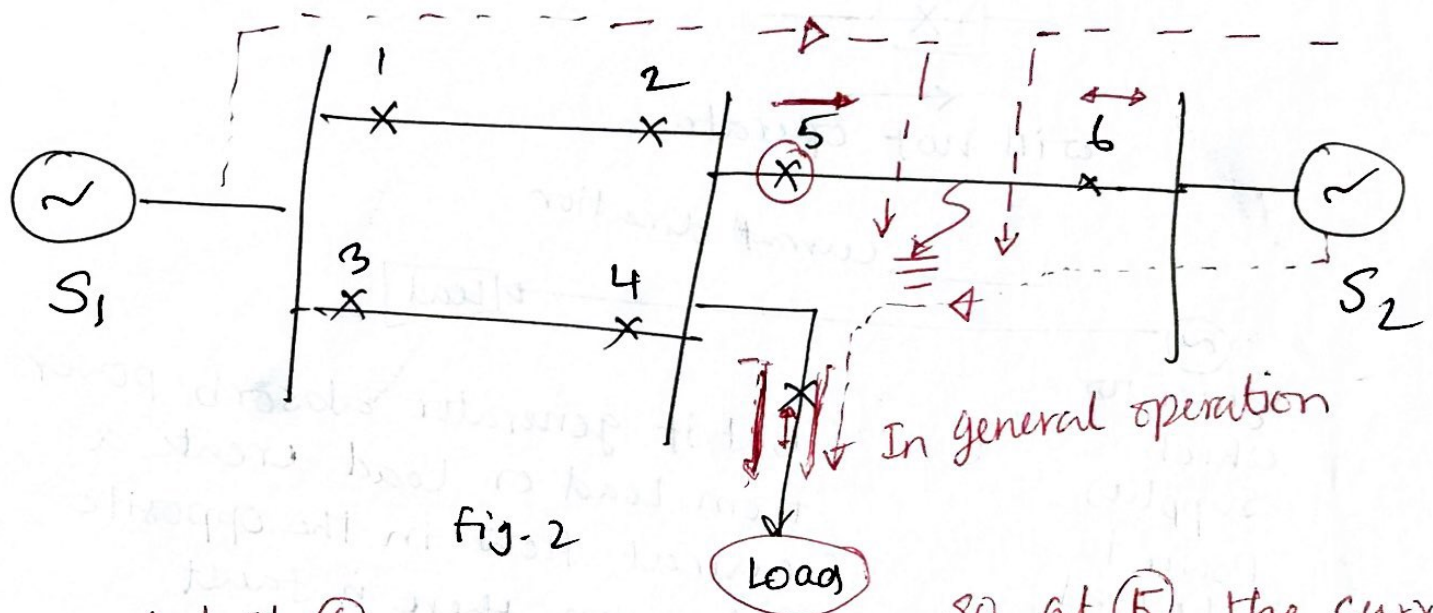 1
2
5
6
S1
3
4
S2
In general operation
fig. 2
Load
so at 5 the